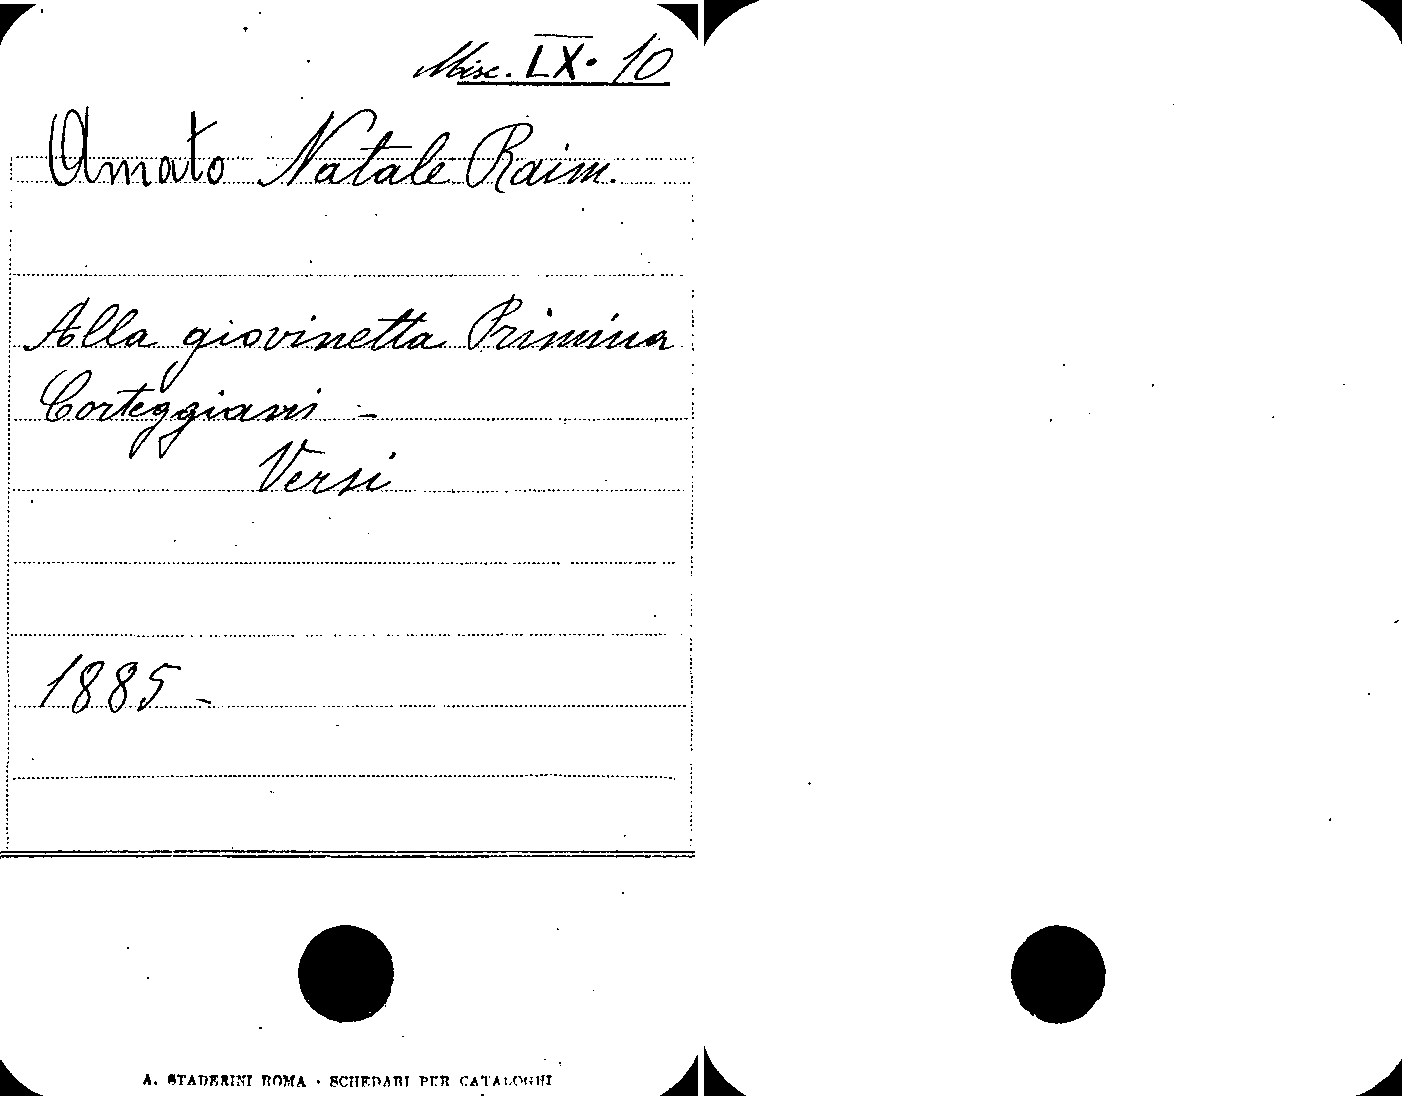 Misc. LX. 10
Amato Natale Raim.
Alla giovinetta Primina
Corteggiani -
Versi
1885 -
A. STADERINI ROMA · SCHEDARI PER CATALOGHI